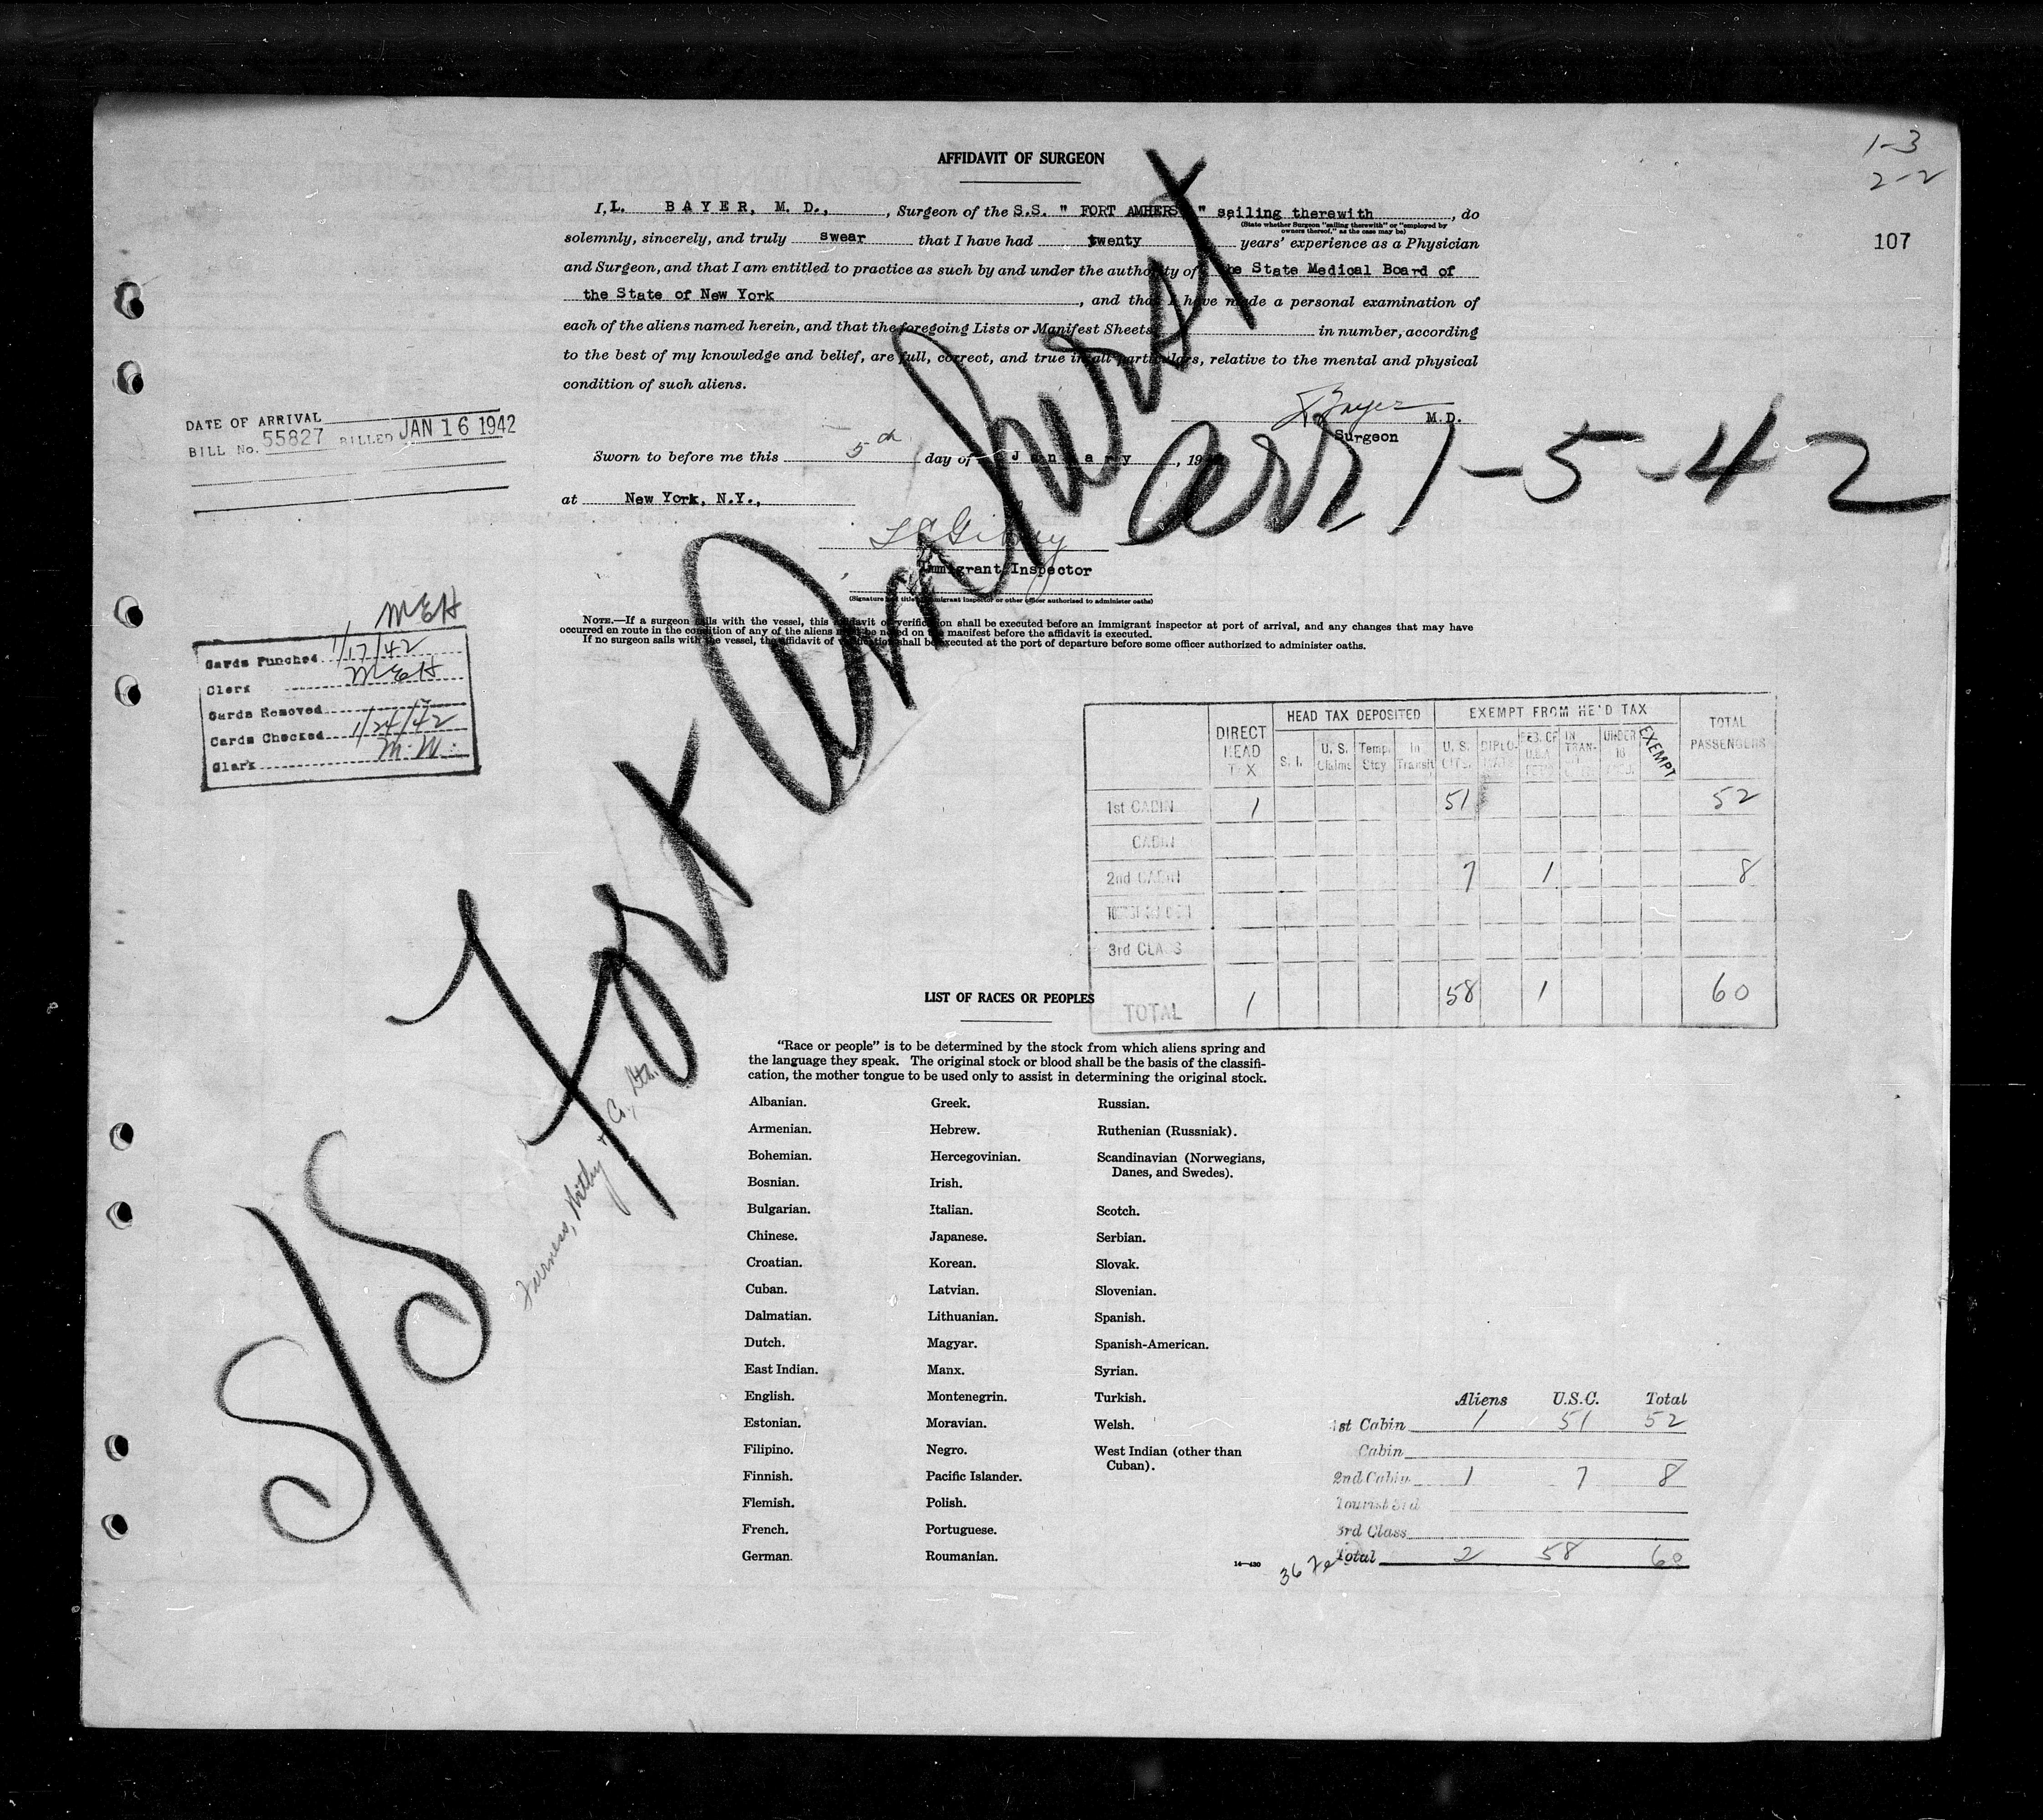 1-3
2-2
107
AFFIDAVIT OF SURGEON
I, L. BAYER, M. D., , Surgeon of the S.S. " FORT AMHERST " sailing therewith , do
(State whether Surgeon "sailing therewith" or "employed by
owners thereof," as the case may be)
solemnly, sincerely, and truly swear that I have had twenty years' experience as a Physician
and Surgeon, and that I am entitled to practice as such by and under the authority of the State Medical Board of
the State of New York , and that I have made a personal examination of
each of the aliens named herein, and that the foregoing Lists or Manifest Sheets in number, according
to the best of my knowledge and belief, are full, correct, and true in all particulars, relative to the mental and physical
condition of such aliens.
L Bayer M.D.
Surgeon
Sworn to before me this 5th day of January , 19
at New York, N.Y.,
Immigrant Inspector
(Signature and title of immigrant inspector or other officer authorized to administer oaths)
NOTE.—If a surgeon sails with the vessel, this affidavit of verification shall be executed before an immigrant inspector at port of arrival, and any changes that may have
occurred en route in the condition of any of the aliens must be noted on the manifest before the affidavit is executed.
If no surgeon sails with the vessel, the affidavit of verification shall be executed at the port of departure before some officer authorized to administer oaths.
S/S Fort Amherst
arr. 1-5-42
Furness, Withy + Co., Ltd.
DATE OF ARRIVAL
BILL No. 55827 BILLED JAN 16 1942
MEH
Cards Punched 1/17/42
Clerk MEH
Cards Removed
Cards Checked 1/24/42
Clerk M. W.
DIRECT HEAD TAX HEAD TAX DEPOSITED EXEMPT FROM HEAD TAX TOTAL PASSENGERS
S. I. U. S. Claims Temp. Stay In Transit U. S. CITS. DIPLOMATS RES. OF U.S.A. IN TRAN- UNDER 16 EXEMPT
1st CABIN 1 51 52
CABIN
2nd CABIN 7 1 8
3rd CLASS
TOTAL 1 58 1 60
LIST OF RACES OR PEOPLES
"Race or people" is to be determined by the stock from which aliens spring and
the language they speak. The original stock or blood shall be the basis of the classifi-
cation, the mother tongue to be used only to assist in determining the original stock.
Albanian.
Armenian.
Bohemian.
Bosnian.
Bulgarian.
Chinese.
Croatian.
Cuban.
Dalmatian.
Dutch.
East Indian.
English.
Estonian.
Filipino.
Finnish.
Flemish.
French.
German.
Greek.
Hebrew.
Hercegovinian.
Irish.
Italian.
Japanese.
Korean.
Latvian.
Lithuanian.
Magyar.
Manx.
Montenegrin.
Moravian.
Negro.
Pacific Islander.
Polish.
Portuguese.
Roumanian.
Russian.
Ruthenian (Russniak).
Scandinavian (Norwegians,
Danes, and Swedes).
Scotch.
Serbian.
Slovak.
Slovenian.
Spanish.
Spanish-American.
Syrian.
Turkish.
Welsh.
West Indian (other than
Cuban).
14—430
Aliens U.S.C. Total
1st Cabin 1 51 52
Cabin
2nd Cabin 1 7 8
Tourist 3rd
3rd Class
Total 2 58 60